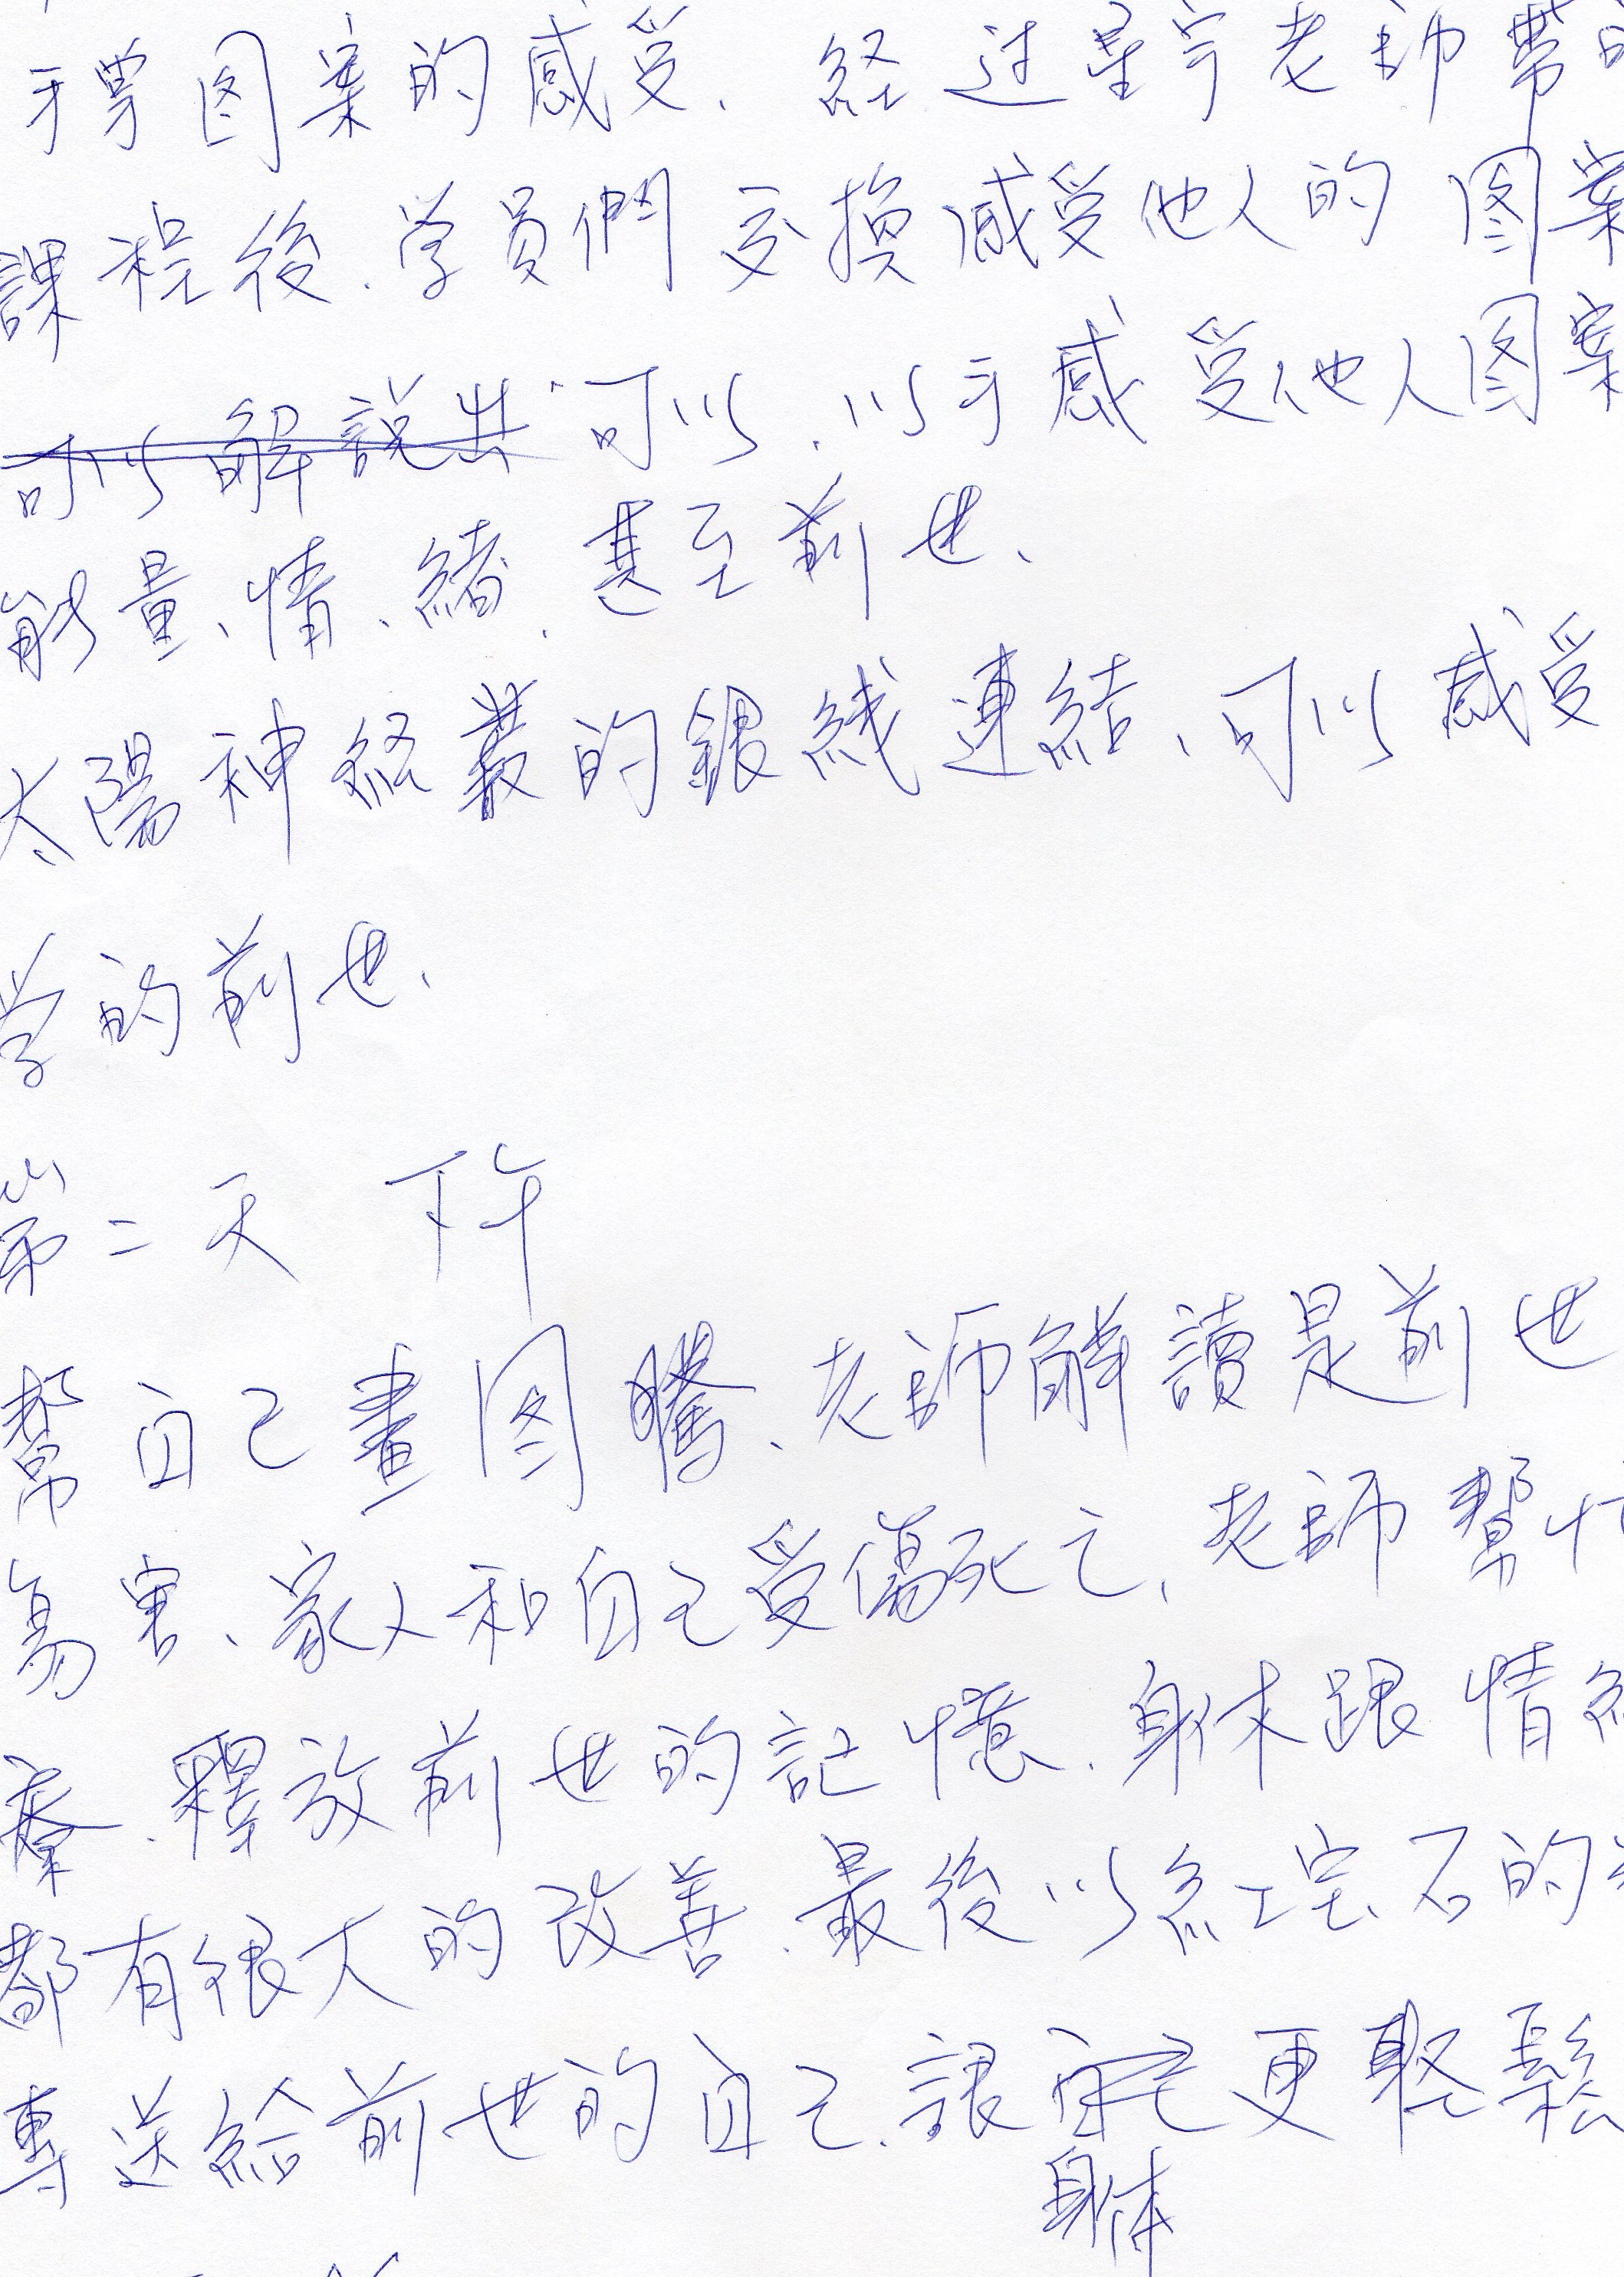 手掌图案的感受、経过星宇老師帶
課程後、学員們交換感受他人的图案
可以解說出可以、以手感受他人图案
能量、情、緒、甚至前世、
太陽神経叢的銀綫連結、可以感受
学的前世、
第二天 下午
幫自己畫图騰、老師解讀是前世
傷害、家人和自己受傷死亡、老師幫忙
療、釋放前世的記憶、身体跟情緒
都有很大的改善、最後以紅宝石的
專送給前世的自己、讓自己更輕鬆
身体